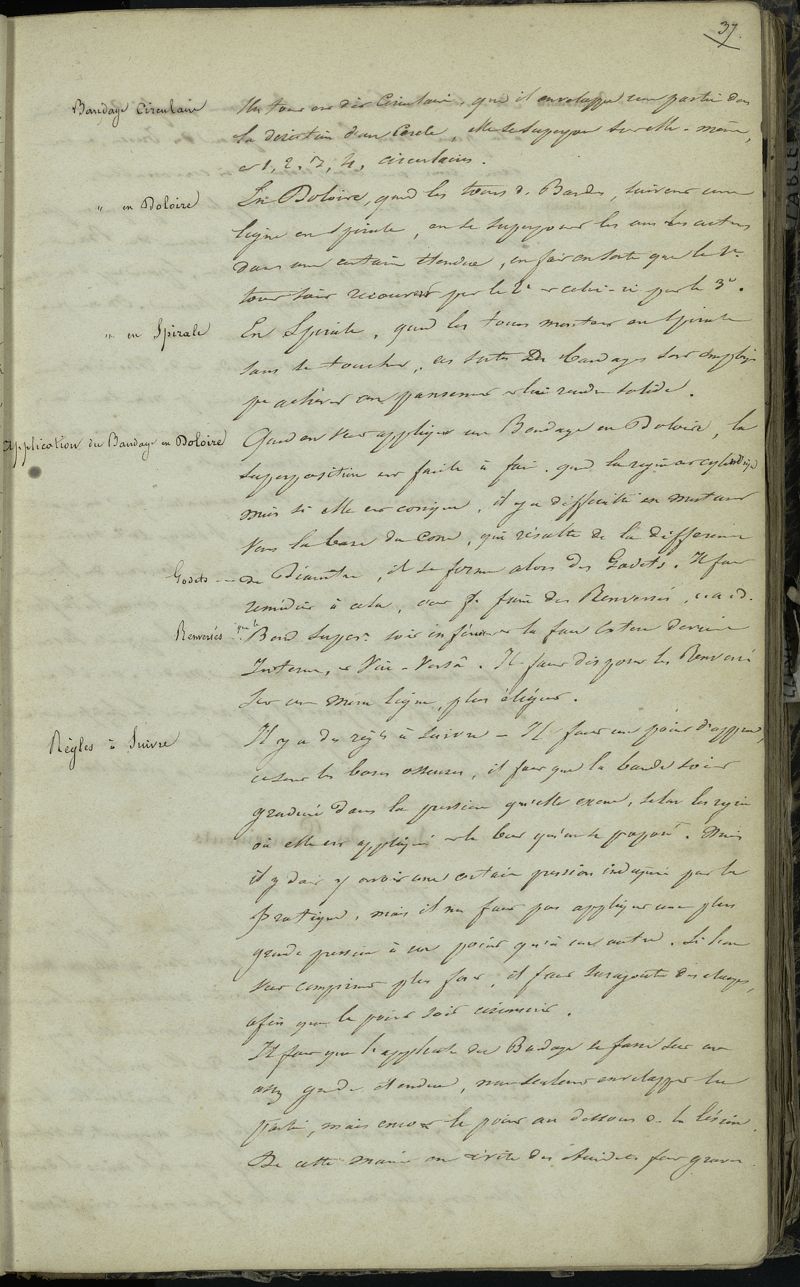 37.
Bandage Circulaire
Un tour est dit Circulaire, quand il enveloppe une partie dans
la direction d'un Cercle, elle se superpose sur elle-même,
et 1, 2, 3, 4, circulaires.
" en Doloire
En Doloire, quand les tours de Bandes, suivent une
ligne en Spirale, en se superposant les uns les autres
dans une certaine étendue, en fait en sorte que le 1er
tour soit recouvert par le 2e et celui-ci par le 3e.
" en Spirale
En Spirale, quand les tours montent en Spirale
sans se toucher, ces sortes De bandages sont employés
pr achever un pansement et lui rendre solide.
Application du Bandage en Doloire
Quand on veut appliquer un Bandage en Doloire, la
superposition est facile à faire quand la région est cylindrique
mais si elle est conique, il y a difficulté en montant
Vers la base du Cone, qui résulte de la différence
Godets
de Diamètre, il se forme alors des Godets. Il faut
remédier à cela, et faire des Renversés, c.a.d.
Renversés
que le Bord Super. soit inférieur et la face Externe devienne
Interne, et Vice-Versâ. Il faut disposer les Renversés
Sur une même ligne, plus élégant.
Règles à Suivre
Il y a des règles à suivre - Il faut un point d'appui,
ce sont les bases osseuses, il faut que la bande soit
graduée dans la pression qu'elle exerce, selon les régions
où elle est appliquée et le but qu'on se propose. Mais
il doit y avoir une certaine pression indiquée par la
Pratique, mais il ne faut pas appliquer une plus
grande pression à un point qu'à un autre. Si l'on
veut comprimer plus fort, il faut surajouter des
afin que le point soit
Il faut que l'applicat. du Bandage se fasse sur une
assez grande étendue, non seulement envelopper la
partie, mais encore le point au dessous de la lésion.
De cette manière on évite des Accidents fort graves